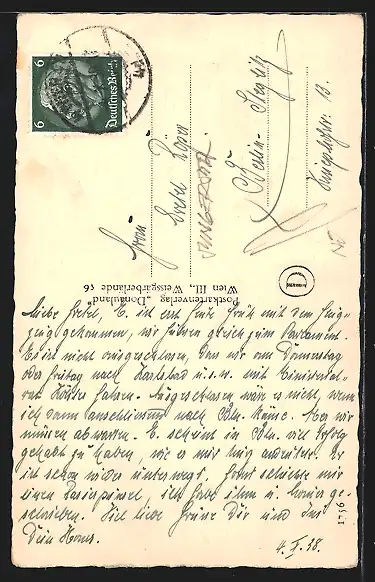 Deutsches Reich
6
6
Frau
Gretel Röger
Berlin-Steglitz
13.
Postkartenverlag „Donauland"
Wien III., Weissgärberlände 56
Liebe Gretel, E. ist erst heute früh mit dem Flug-
zeug gekommen, wir fuhren gleich zum Parlament.
Es ist nicht ausgeschlossen, dass wir am Donnerstag
oder Freitag nach Karlsbad u.s.w. mit Ministerial-
rat fahren. Ausgeschlossen wäre es nicht, wenn
ich dann anschliessend nach Bln. käme. Aber wir
müssen abwarten. E. scheint in Bln. viel Erfolg
gehabt zu haben, wie er mir andeutete. Er
ist schon wieder unterwegs. Sonst schickte mir
einen Rasierpinsel, ich habe ihm
schrieben. Viel liebe Grüsse Dir und
Dein
4. X. 38.
1756